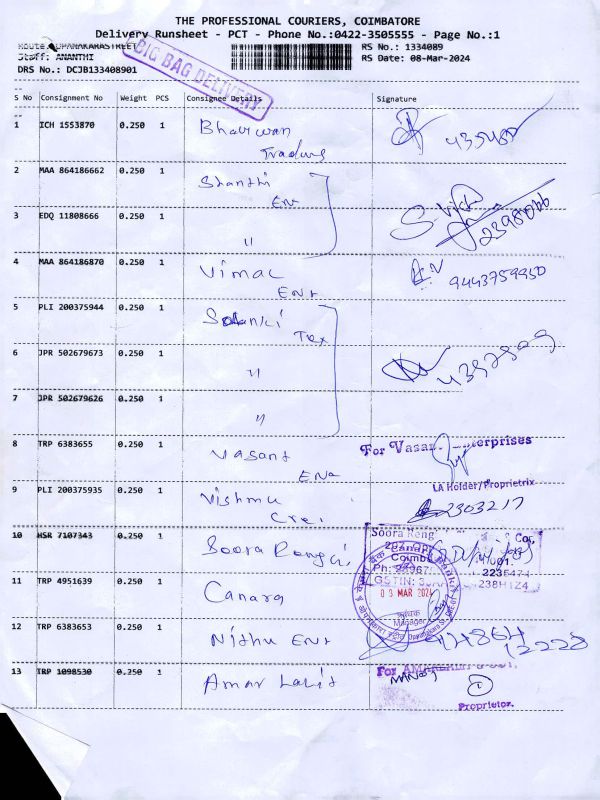 THE PROFESSIONAL COURIERS, COIMBATORE
Delivery Runsheet - PCT - Phone No.:0422-3505555 - Page No.:1
Route: UPANAKARASTREET
Staff: ANANTHI
DRS No.: DCJB133408901
BIG BAG DELIVERY
RS No.: 1334089
RS Date: 08-Mar-2024
S No Consignment No Weight PCS Consignee Details Signature
1 ICH 1553870 0.250 1
Trading
2 MAA 864186662 0.250 1 Shanthi
Ent
3 EDQ 11808666 0.250 1 "
4 MAA 864186870 0.250 1 Vimal
Ent 9443759950
5 PLI 200375944 0.250 1 Solanki
Tex
6 JPR 502679673 0.250 1 "
7 JPR 502679626 0.250 1 "
8 TRP 6383655 0.250 1 Vasant
For Vasan
LA Holder/Proprietrix
9 PLI 200375935 0.250 1 Vishnu 2303217
10 HSR 7107343 0.250 1 Soora Rengai
Soora Reng
Coimb
11 TRP 4951639 0.250 1 Canara
GSTIN:
03 MAR 2024
Manager
12 TRP 6383653 0.250 1 Nithu Ent
13 TRP 1098530 0.250 1 Amar Lalit
Proprietor.